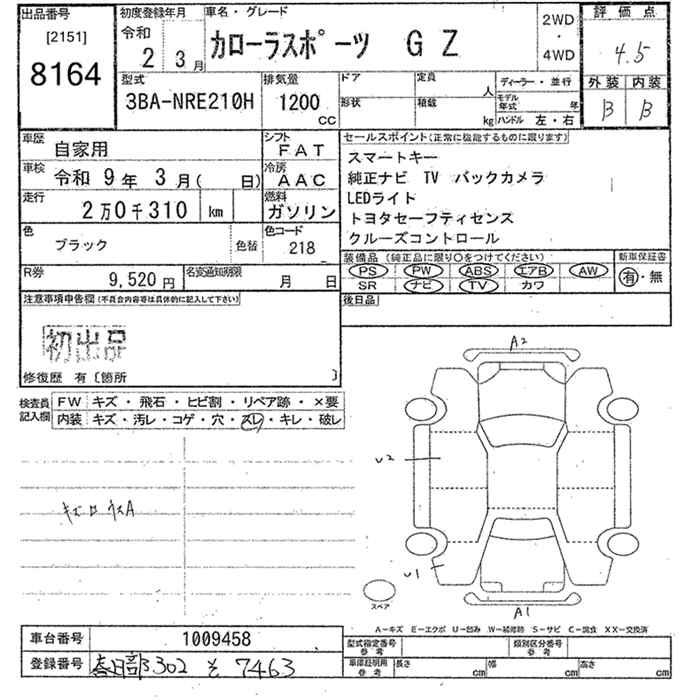 出品番号
[2151]
8164
初度登録年月
令和
2 3月
車名・グレード
カローラスポーツ G Z
2WD
・
4WD
評価点
4.5
外装 内装
B B
型式
3BA-NRE210H
排気量
1200
cc
ドア
形状
定員
人
積載
kg
ディーラー・並行
モデル年式 年
ハンドル 左・右
車歴
自家用
シフト
FAT
車検
令和 9年 3月( 日)
冷房
AAC
走行
2万0千310 km
燃料
ガソリン
色
ブラック
色替
色コード
218
R券
9,520円
名変通知期限
月 日
セールスポイント(正常に機能するものに限ります)
スマートキー
純正ナビ TV バックカメラ
LEDライト
トヨタセーフティセンス
クルーズコントロール
装備品 (純正品に限り○をつけてください)
PS PW ABS エアB AW
SR ナビ TV カワ
新車保証書
有・無
後日品
注意事項申告欄(不具合内容等は具体的に記入して下さい)
初出品
修復歴 有〔箇所 〕
検査員記入欄
FW キズ・飛石・ヒビ割・リペア跡・×要
内装 キズ・汚レ・コゲ・穴・スレ・キレ・破レ
A2
U2
U1
A1
スペア
A-キズ E-エクボ U-凹み W-補修跡 S-サビ C-腐食 XX-交換済
車台番号 1009458
登録番号 春日部 302 そ 7463
型式指定番号
参考
類別区分番号
参考
車庫証明用
参考
長さ cm 幅 cm 高さ cm